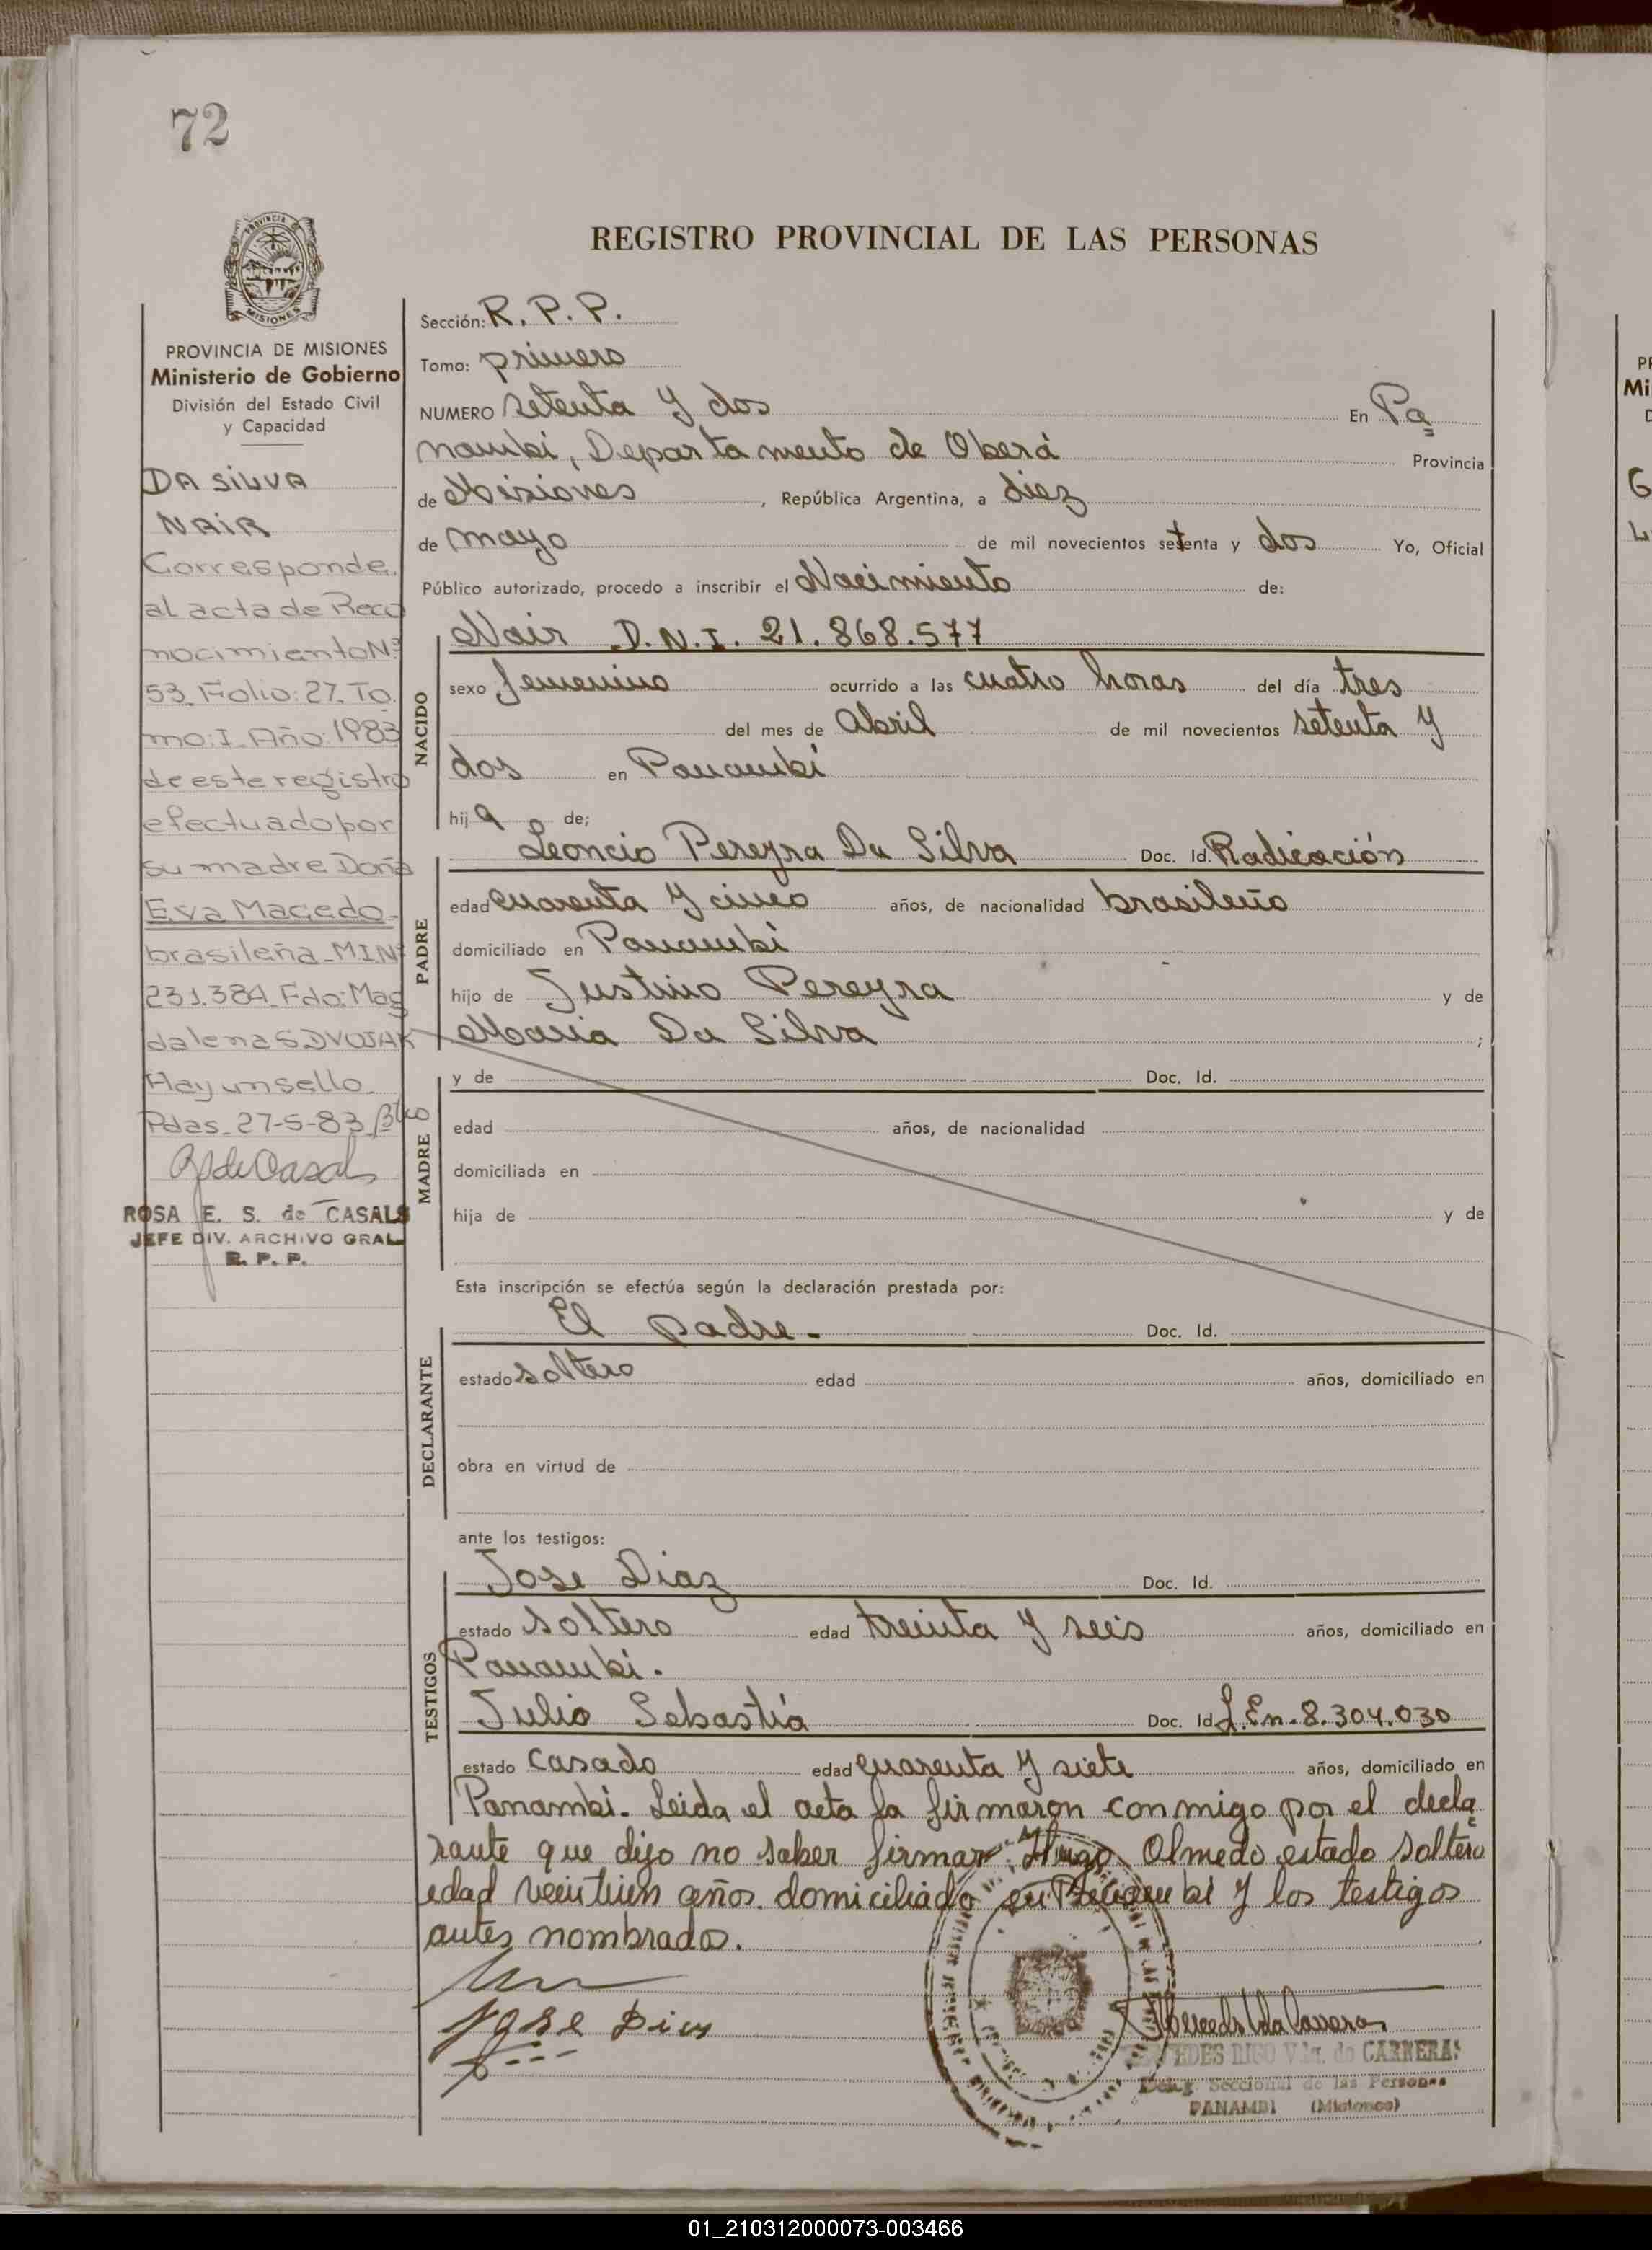 72
PROVINCIA
MISIONES
REGISTRO PROVINCIAL DE LAS PERSONAS
PROVINCIA DE MISIONES
Ministerio de Gobierno
División del Estado Civil
y Capacidad
DA SILVA
NAIR
Corresponde
al acta de Reco
nocimiento Nº
53 Folio: 27. To
mo: I Año: 1983
de este registro
efectuado por
su madre Doña
Eva Macedo-
brasileña MINº
231.384 Fdo: Mag
dalena S DVOJAK
Hay un sello
Pdas. 27-5-83
ROSA E. S. de CASALS
JEFE DIV. ARCHIVO GRAL
R. P. P.
Sección: R. P. P.
Tomo: primero
NUMERO setenta y dos En Pa
nambí, Departamento de Oberá Provincia
de Misiones, República Argentina, a diez
de mayo de mil novecientos setenta y dos Yo, Oficial
Público autorizado, procedo a inscribir el Nacimiento de:
NACIDO
Nair D.N.I. 21.868.577
sexo femenino ocurrido a las cuatro horas del día tres
del mes de Abril de mil novecientos setenta y
dos en Panambí
hija de;
PADRE
Leoncio Pereyra Da Silva Doc. Id. Radicación
edad cuarenta y cinco años, de nacionalidad brasileño
domiciliado en Panambí
hijo de Justino Pereyra y de
Maria Da Silva ;
MADRE
y de Doc. Id.
edad años, de nacionalidad
domiciliada en
hija de y de
Esta inscripción se efectúa según la declaración prestada por:
DECLARANTE
El padre. Doc. Id.
estado soltero edad años, domiciliado en
obra en virtud de
ante los testigos:
TESTIGOS
Jose Diaz Doc. Id.
estado soltero edad treinta y seis años, domiciliado en
Panambi.
Julio Sebastiá Doc. Id. L.En. 8.304.030
estado casado edad cuarenta y siete años, domiciliado en
Panambi. Leida el acta la firmaron conmigo por el decla
rante que dijo no saber firmar: Hugo Olmedo estado soltero
edad años domiciliado en Panambi y los testigos
antes nombrados.
Jose Dias
de CARRERAS
Deleg. Seccional de las Personas
PANAMBI (Misiones)
PR
Mi
D
01_210312000073-003466